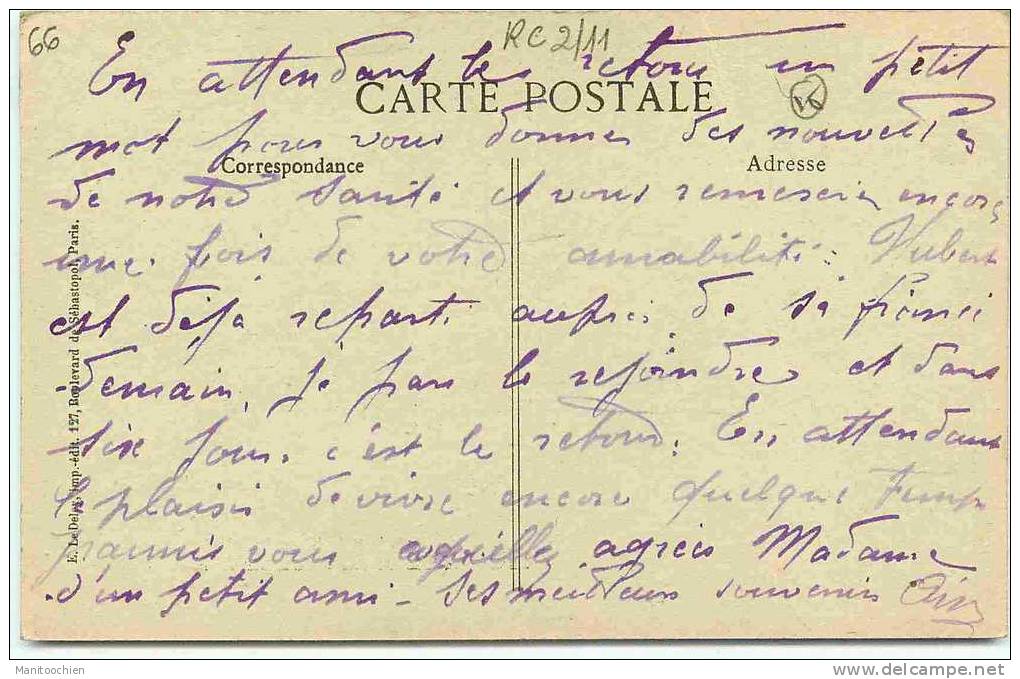 66
RC 2/11
En attendant le retour un petit
CARTE POSTALE
mot pour vous donner des nouvelles
Correspondance
Adresse
de notre santé et vous remercier encore
une fois de votre amabilité. Hubert
est déjà reparti auprès de sa fiancé
demain, je pars le rejoindre et dans
six jours c'est le retour. En attendant
le plaisir de vivre encore quelque temps
parmis vous agréés Madame
d'un petit ami - ses meilleurs souvenirs
E. Le Deley, imp.-édit. 127, Boulevard de Sébastopol, Paris.
Manitoochien
www.delcampe.net